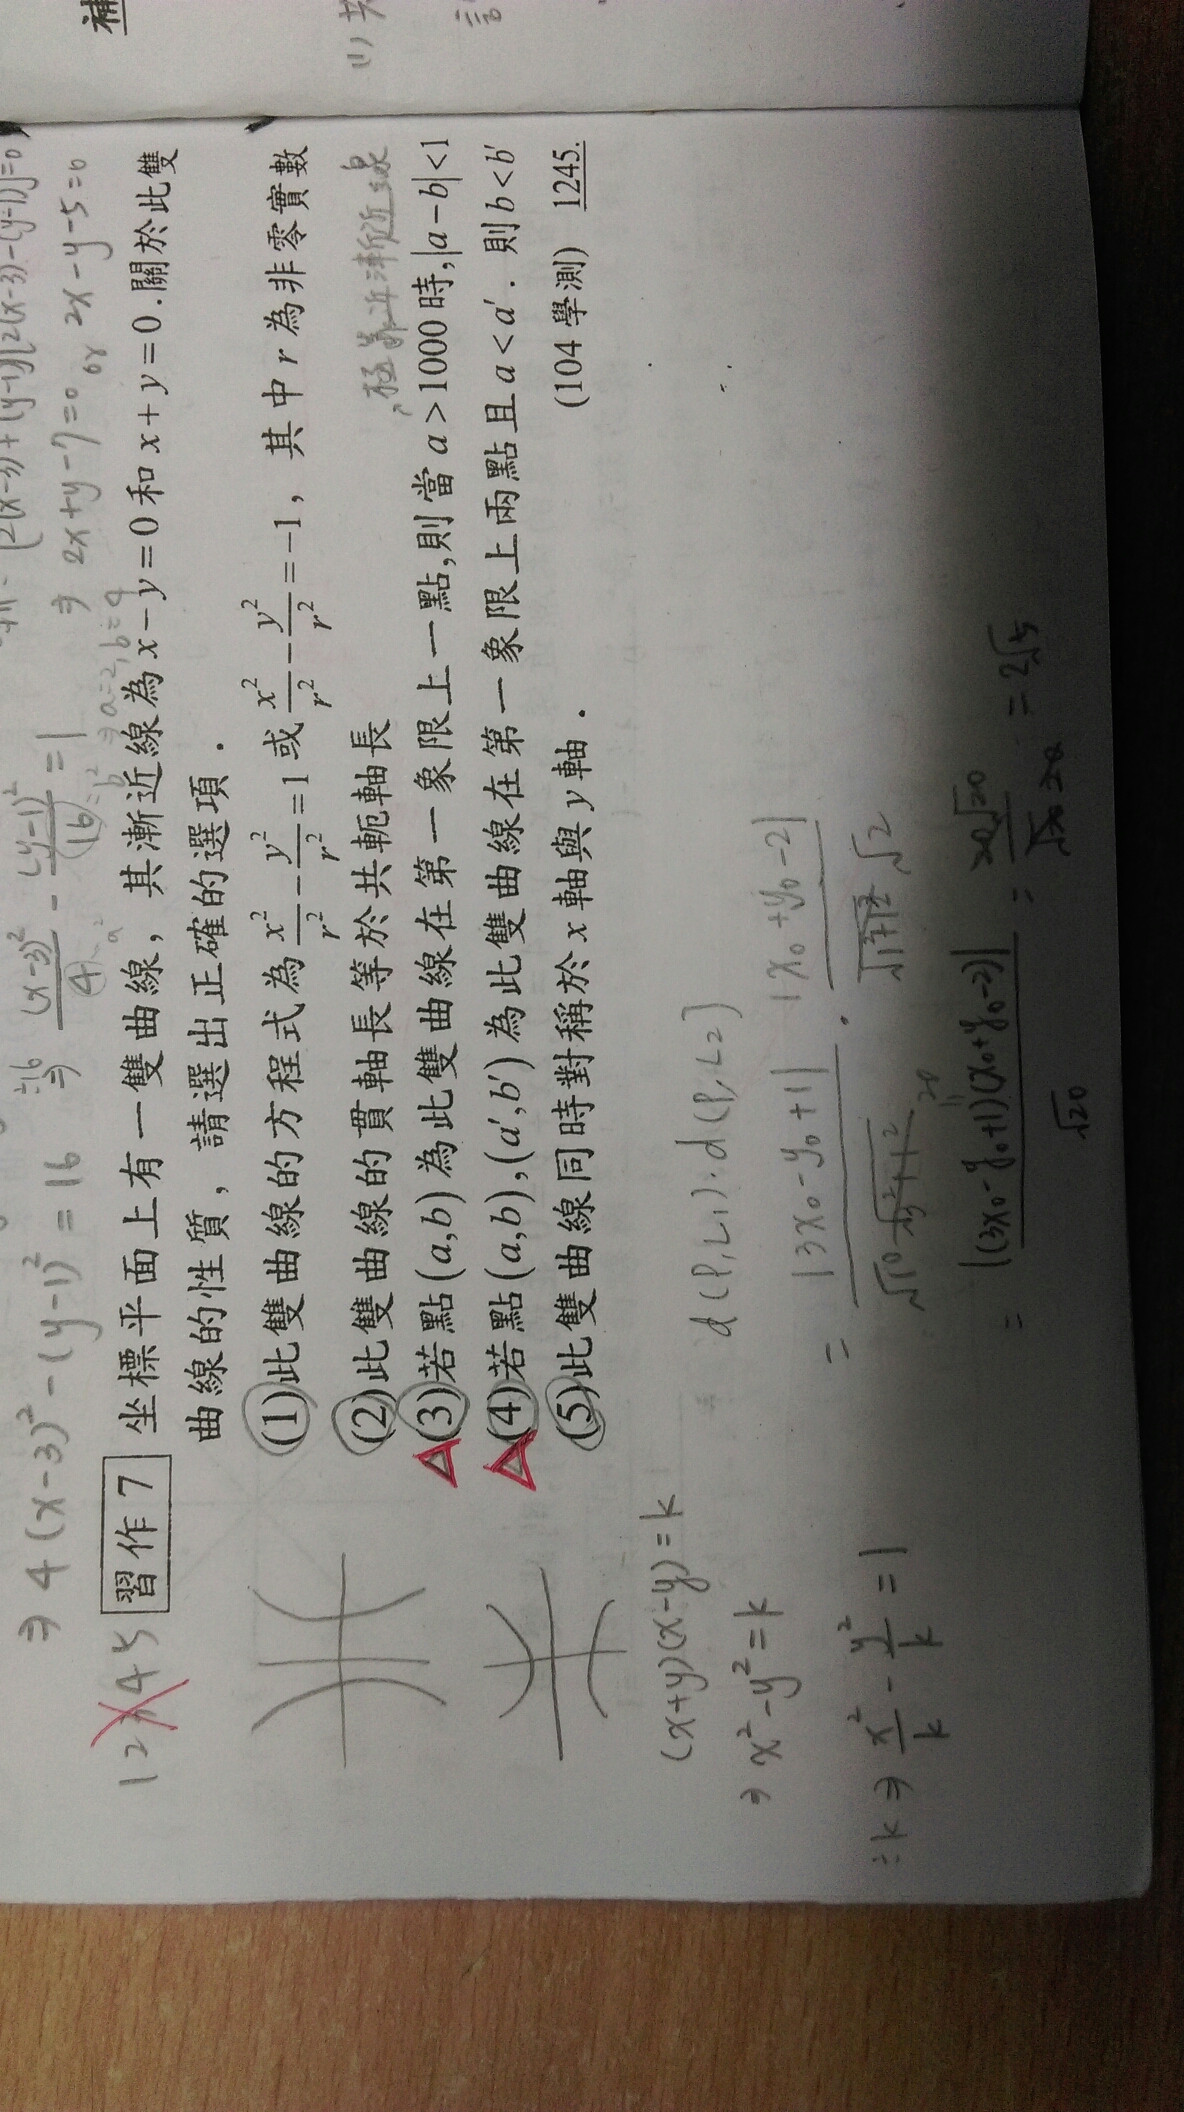 補
(1) 共
⇒ 4(x-3)²-(y-1)²=16
÷16 ⇒ (x-3)²/4 - (y-1)²/16 = 1
⇒ a=2, b=4
[2(x-3)+(y-1)][2(x-3)-(y-1)]=0
⇒ 2x+y-7=0 or 2x-y-5=0
習作 7 坐標平面上有一雙曲線，其漸近線為 x-y=0 和 x+y=0．關於此雙
曲線的性質，請選出正確的選項．
(1)此雙曲線的方程式為 x²/r² - y²/r² = 1 或 x²/r² - y²/r² = -1，其中 r 為非零實數
(2)此雙曲線的貫軸長等於共軛軸長
極靠近漸近線
(3)若點(a,b)為此雙曲線在第一象限上一點,則當 a>1000 時,|a-b|<1
(4)若點(a,b),(a′,b′)為此雙曲線在第一象限上兩點且 a<a′．則 b<b′
(5)此雙曲線同時對稱於 x 軸與 y 軸．
(104 學測) 1245.
(x+y)(x-y)=k
⇒ x²-y²=k
÷k ⇒ x²/k - y²/k = 1
d(P,L1)·d(P,L2)
= |3x₀-y₀+1|/√10 · |x₀+y₀-2|/√2
= |(3x₀-y₀+1)(x₀+y₀-2)|/√20 = = 2√5